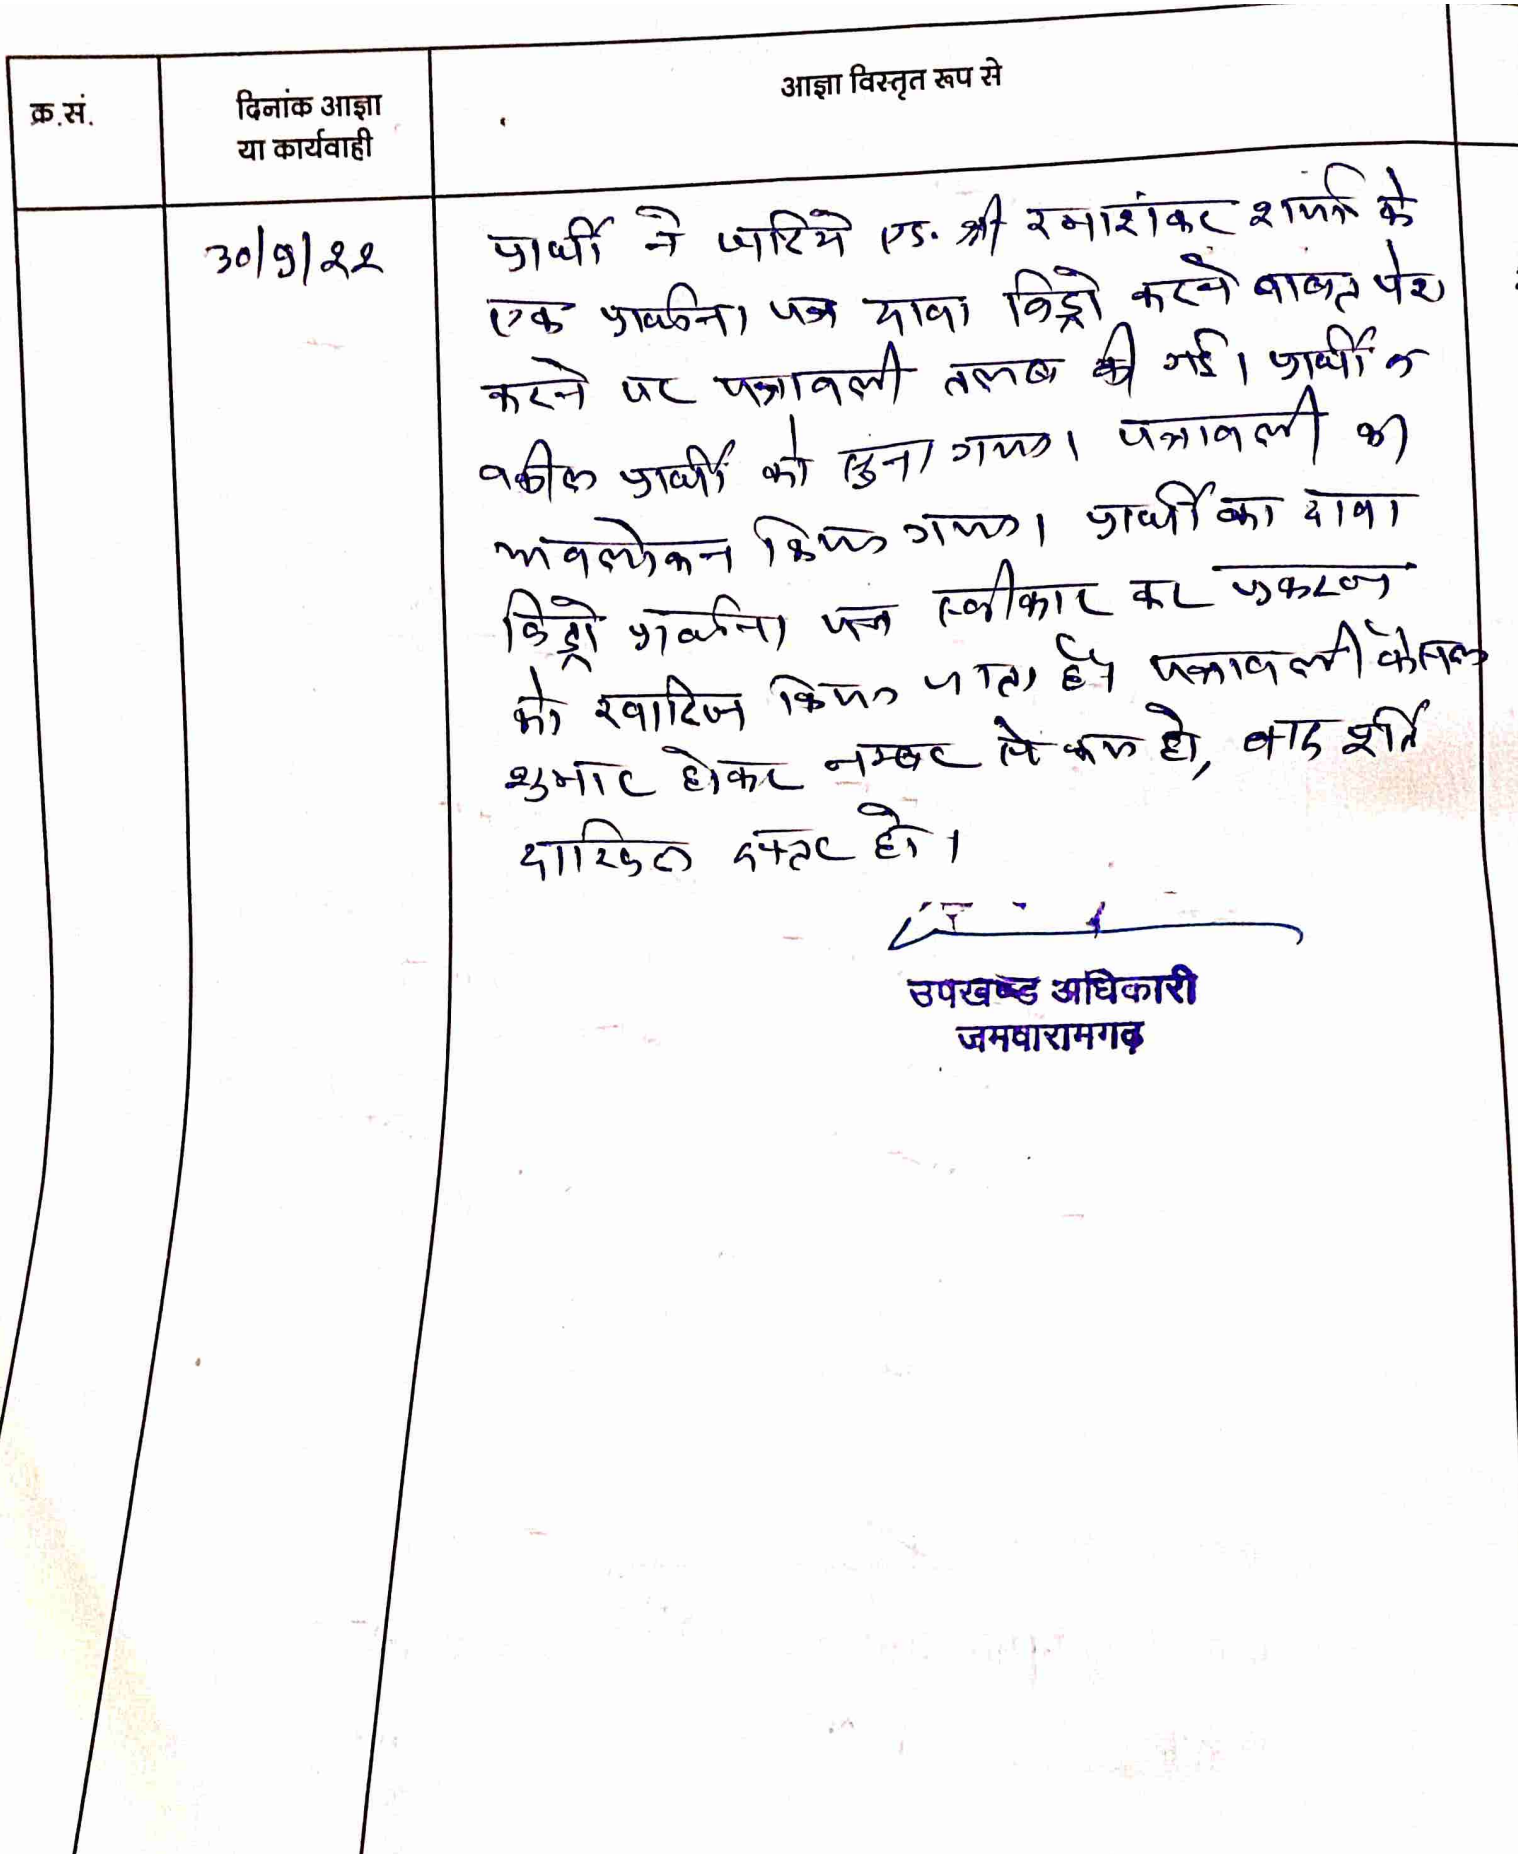 क्र.सं.
दिनांक आज्ञा
या कार्यवाही
आज्ञा विस्तृत रूप से
30/9/22
प्रार्थी ने जरिये एड. श्री रमाशंकर शर्मा के
एक प्रार्थना पत्र दावा विड्रो करने बाबत पेश
करने पर पत्रावली तलब की गई। प्रार्थी व
वकील प्रार्थी को सुना गया। पत्रावली का
अवलोकन किया गया। प्रार्थी का दावा
विड्रो प्रार्थना पत्र स्वीकार कर प्रकरण
को खारिज किया जाता है। पत्रावली फैसल
शुमार होकर नम्बर से कम हो, बाद
दाखिल दफ्तर हो।
उपखण्ड अधिकारी
जमवारामगढ़